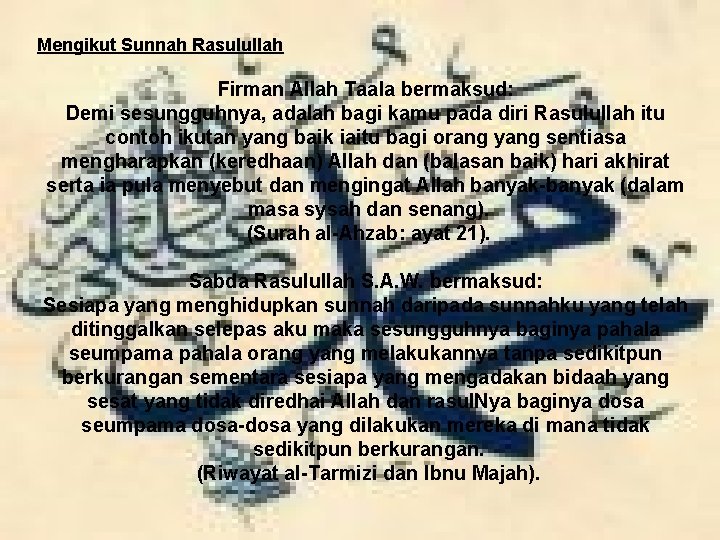 Mengikut Sunnah Rasulullah
Firman Allah Taala bermaksud:
Demi sesungguhnya, adalah bagi kamu pada diri Rasulullah itu
contoh ikutan yang baik iaitu bagi orang yang sentiasa
mengharapkan (keredhaan) Allah dan (balasan baik) hari akhirat
serta ia pula menyebut dan mengingat Allah banyak-banyak (dalam
masa sysah dan senang).
(Surah al-Ahzab: ayat 21).
Sabda Rasulullah S.A.W. bermaksud:
Sesiapa yang menghidupkan sunnah daripada sunnahku yang telah
ditinggalkan selepas aku maka sesungguhnya baginya pahala
seumpama pahala orang yang melakukannya tanpa sedikitpun
berkurangan sementara sesiapa yang mengadakan bidaah yang
sesat yang tidak diredhai Allah dan rasulNya baginya dosa
seumpama dosa-dosa yang dilakukan mereka di mana tidak
sedikitpun berkurangan.
(Riwayat al-Tarmizi dan Ibnu Majah).